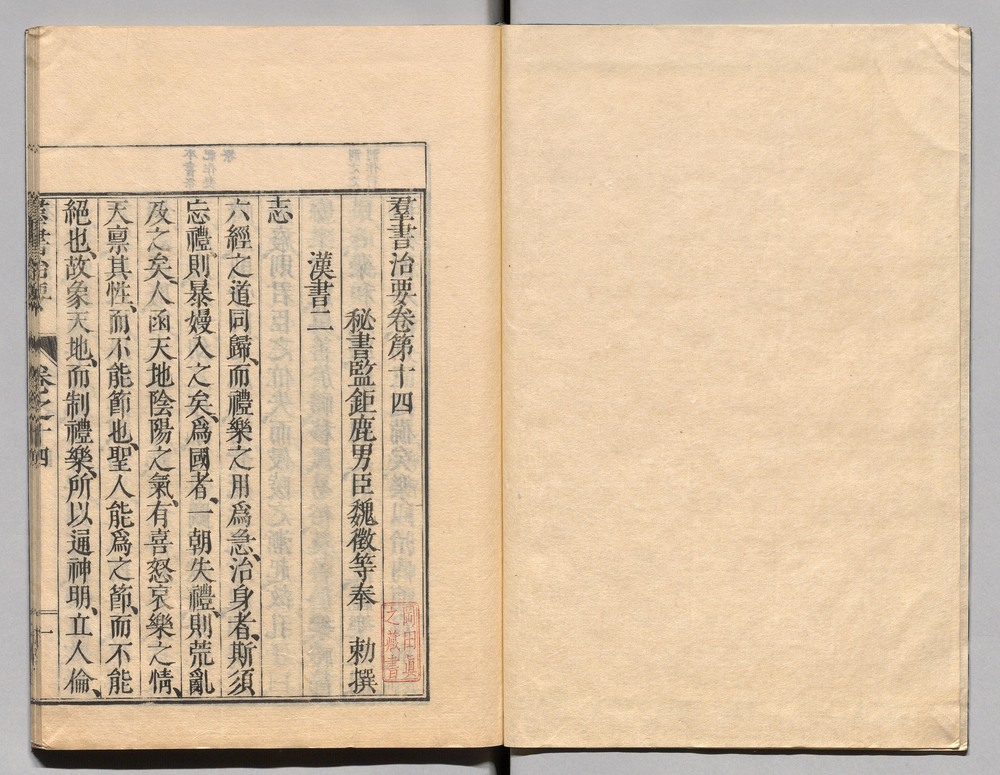 羣書治要卷第十四
秘書監鉅鹿男臣魏徵等奉　勅撰
漢書二
志
六經之道同歸、而禮樂之用爲急、治身者、斯須
忘禮、則暴嫚入之矣、爲國者、一朝失禮、則荒亂
及之矣、人函天地陰陽之氣、有喜怒哀樂之情、
天禀其性、而不能節也、聖人能爲之節、而不能
絕也、故象天地、而制禮樂、所以通神明、立人倫、
卷之十四
一
岡田眞
之藏書